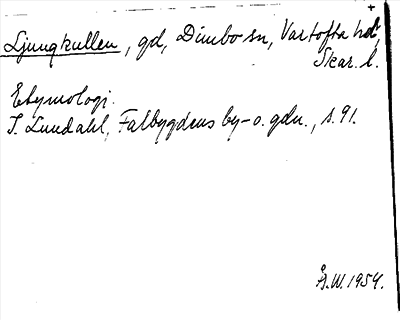 Ljungkullen, gd, Dimbo sn, Vartofta hd,
Skar. l.
Etymologi.
I. Lundahl, Falbygdens by- o. gdn., s. 91.
Å.W. 1954.